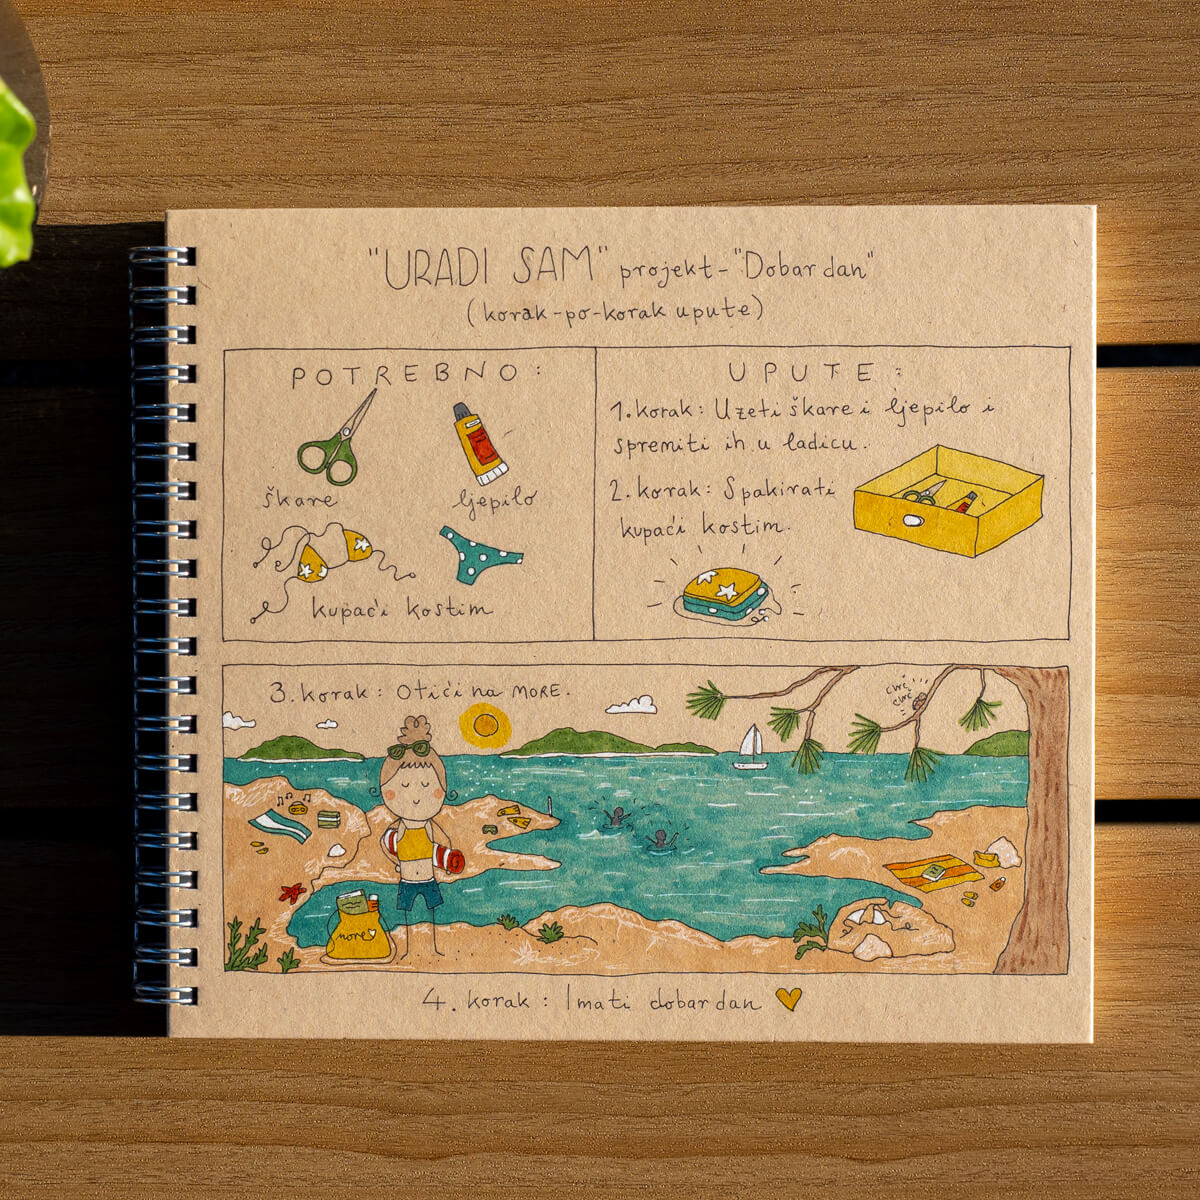 "URADI SAM" projekt - "Dobar dan"
(korak-po-korak upute)
POTREBNO:
škare
ljepilo
kupaći kostim
UPUTE:
1. korak: Uzeti škare i ljepilo i
spremiti ih u ladicu.
2. korak: Spakirati
kupaći kostim.
3. korak: Otići na MORE.
cvrč
cvrč
more
4. korak: Imati dobar dan